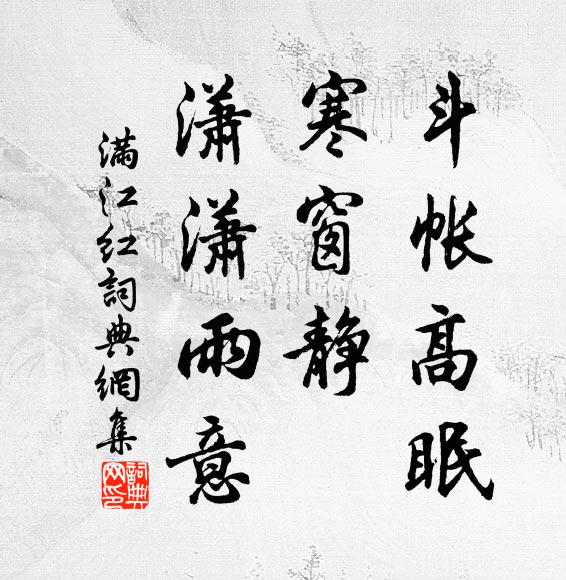 斗帐高眠
寒窗静
潇潇雨意
满江红詞典網集
詞典网印